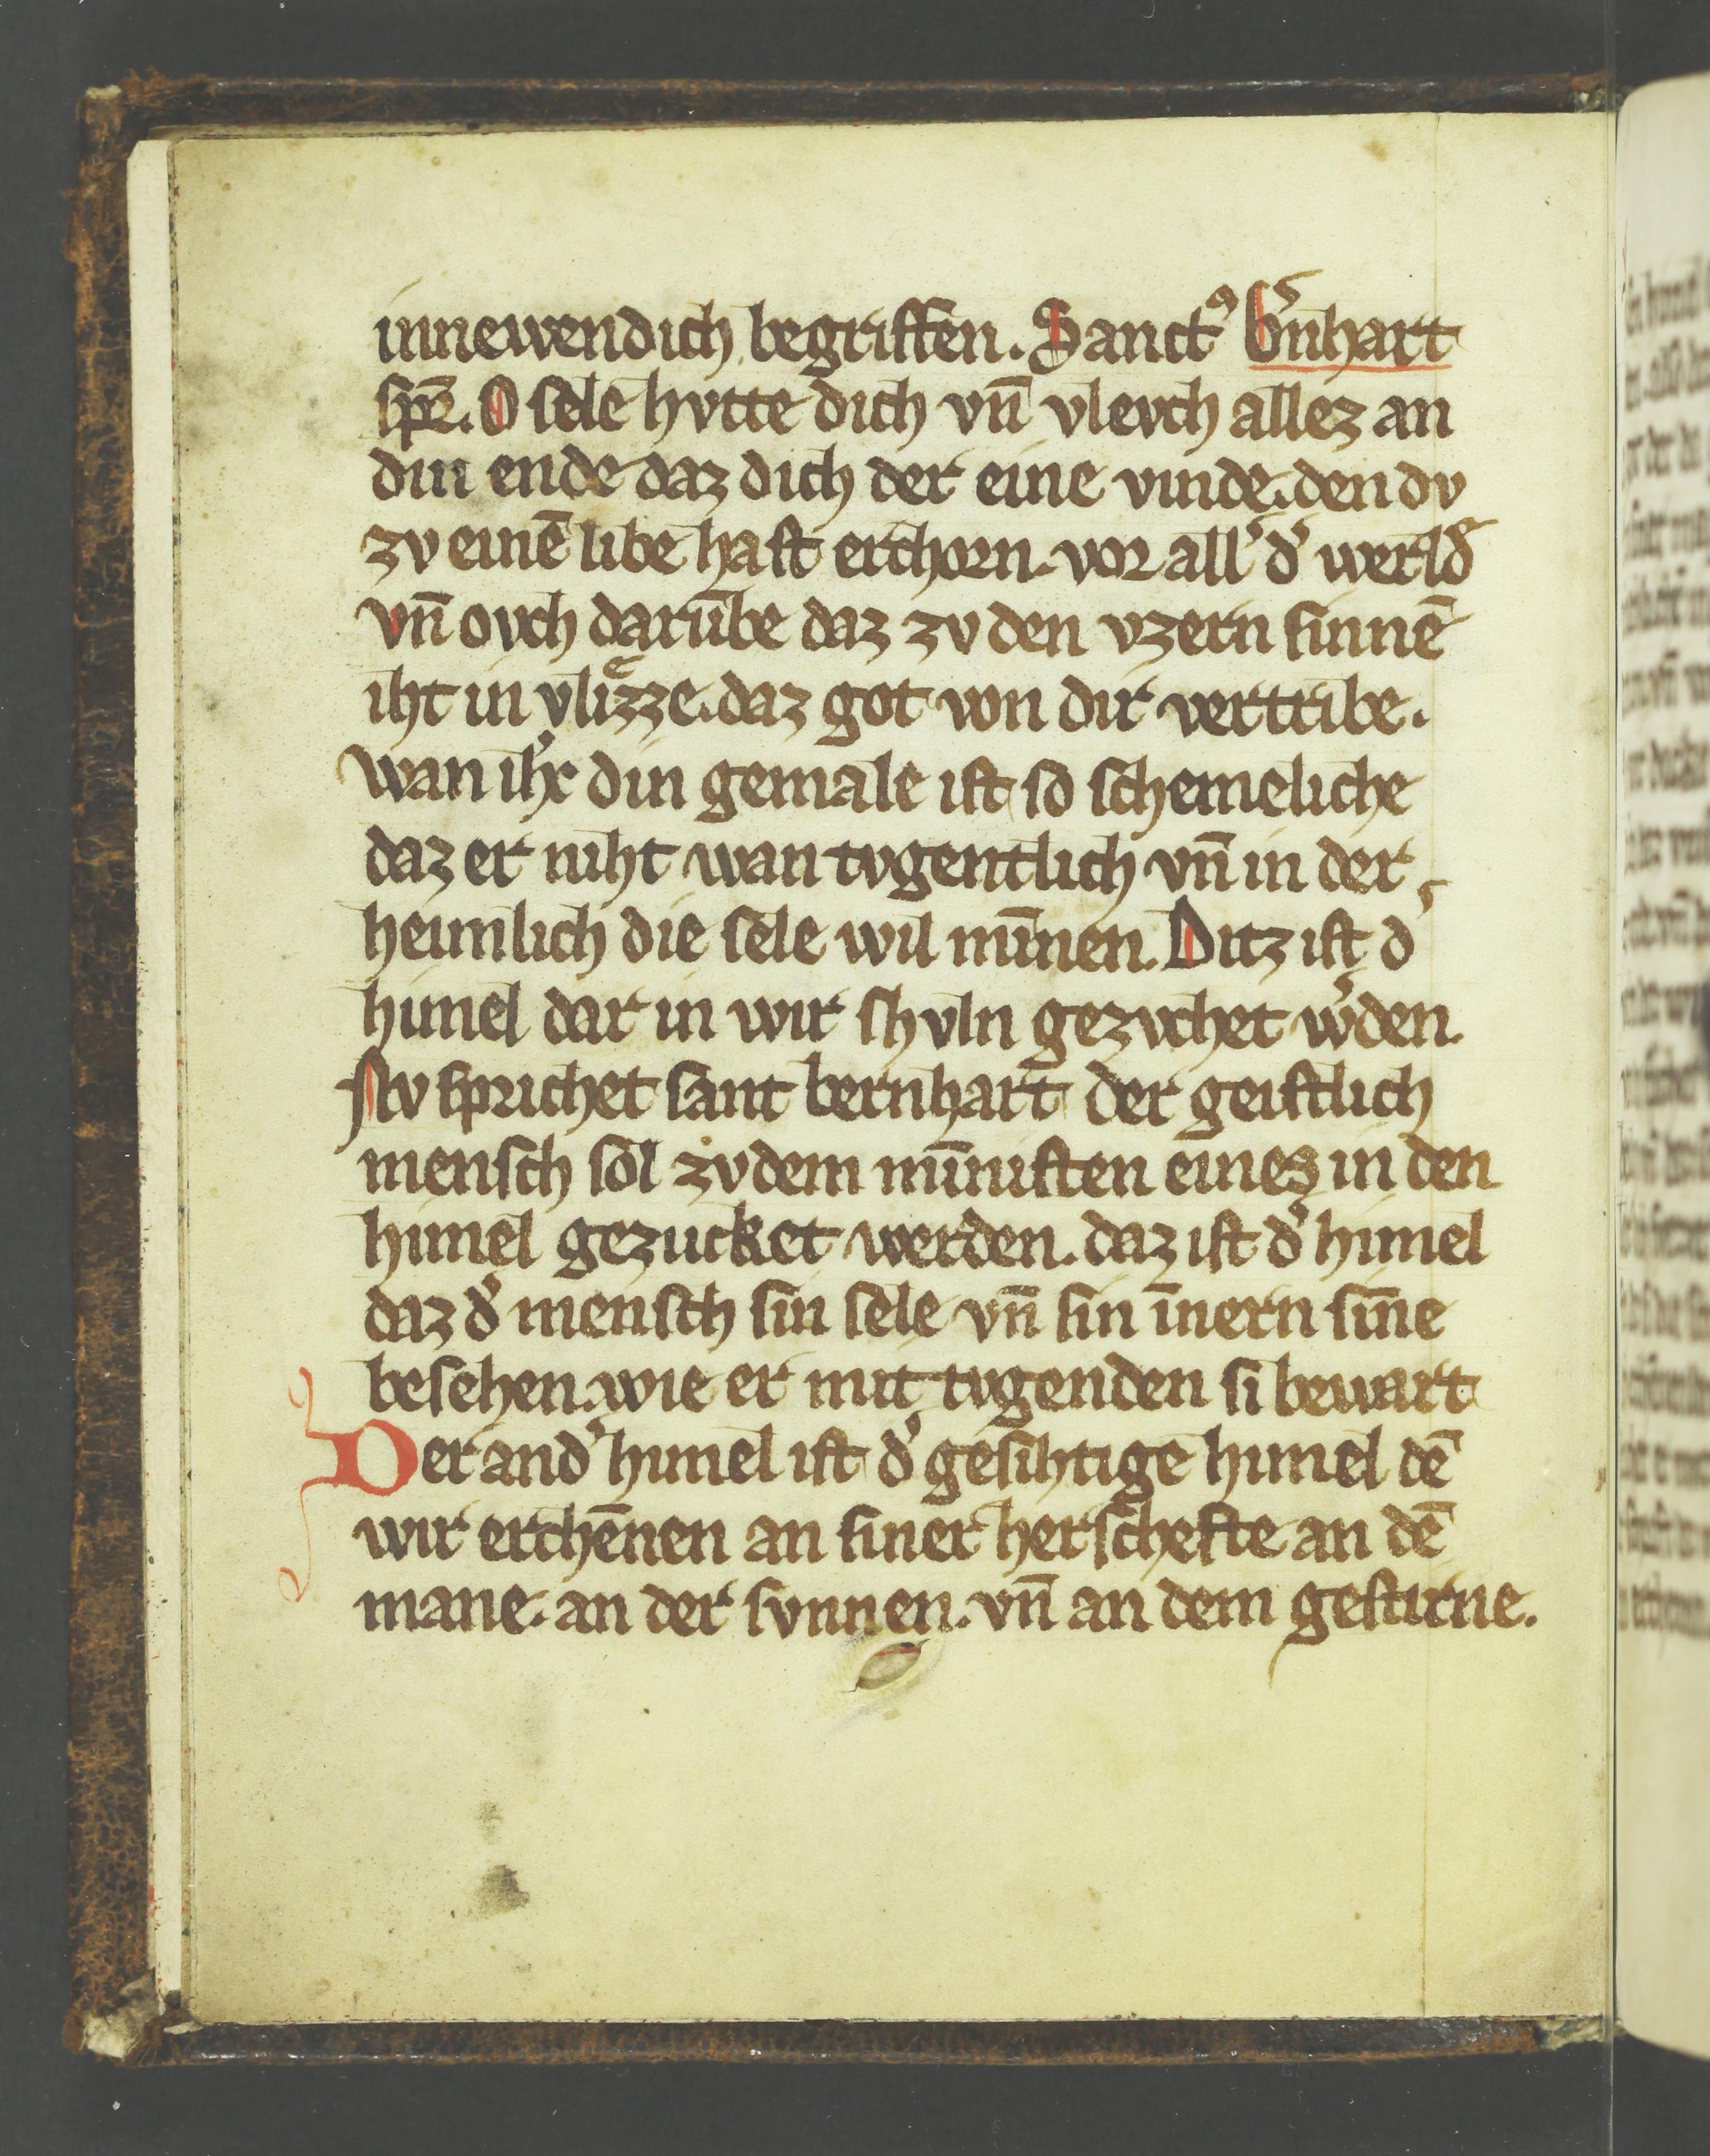 innewendich begriffen. Sanctꝰ b᷒nhart
spͬ. O sele hvtte dich vn̄ vlevch allez an
din ende daz dich der eine vinde. den dv
zv einē libe hast erchorn. vor all᷒ d᷒ werld᷒
vn̄ ovch darūbe daz zv den vzern sinnē
iht in vlizͤze. daz got von dir vertribe.
wan ih᷒x din gemale ist so schemeliche
daz er niht wan tvgentlich vn̄ in der
heimlich die sele wil mīnen. Ditz ist d᷒
himel dar in wir shvln gezvchet w᷒den.
Nv sprichet sant bernhart der geistlich
mensch sol zv dem mīnisten eines in den
himel gezucket werden. daz ist d᷒ himel
daz d᷒ mensch sin sele vn̄ sin īnern sīne
besehen. wie er mit tvgenden si bewart
Der and᷒ himel ist d᷒ gesihtige himel dē
wir erchēnen an siner herschefte an dē
mane. an der svnnen. vn̄ an dem gestirne.